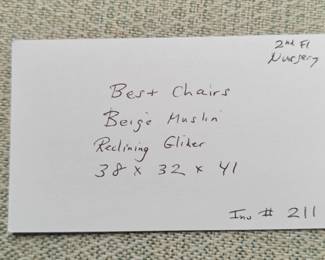 2nd Fl
Nursery
Best Chairs
Beige Muslin
Reclining Glider
38 x 32 x 41
Inv # 211